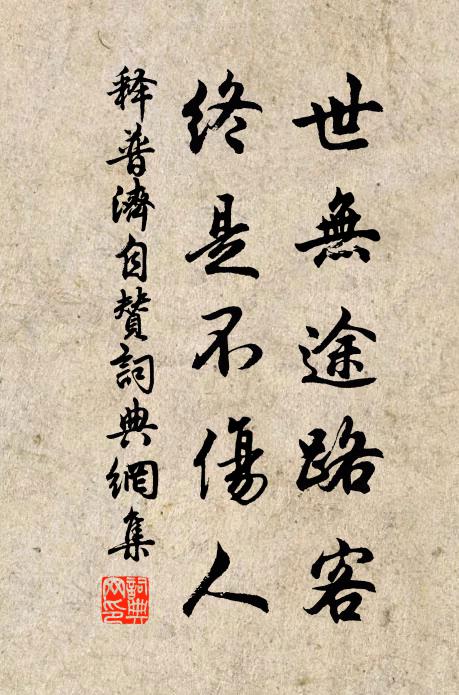 世無途路客
終是不傷人
释普濟自贊詞典網集
詞典文印